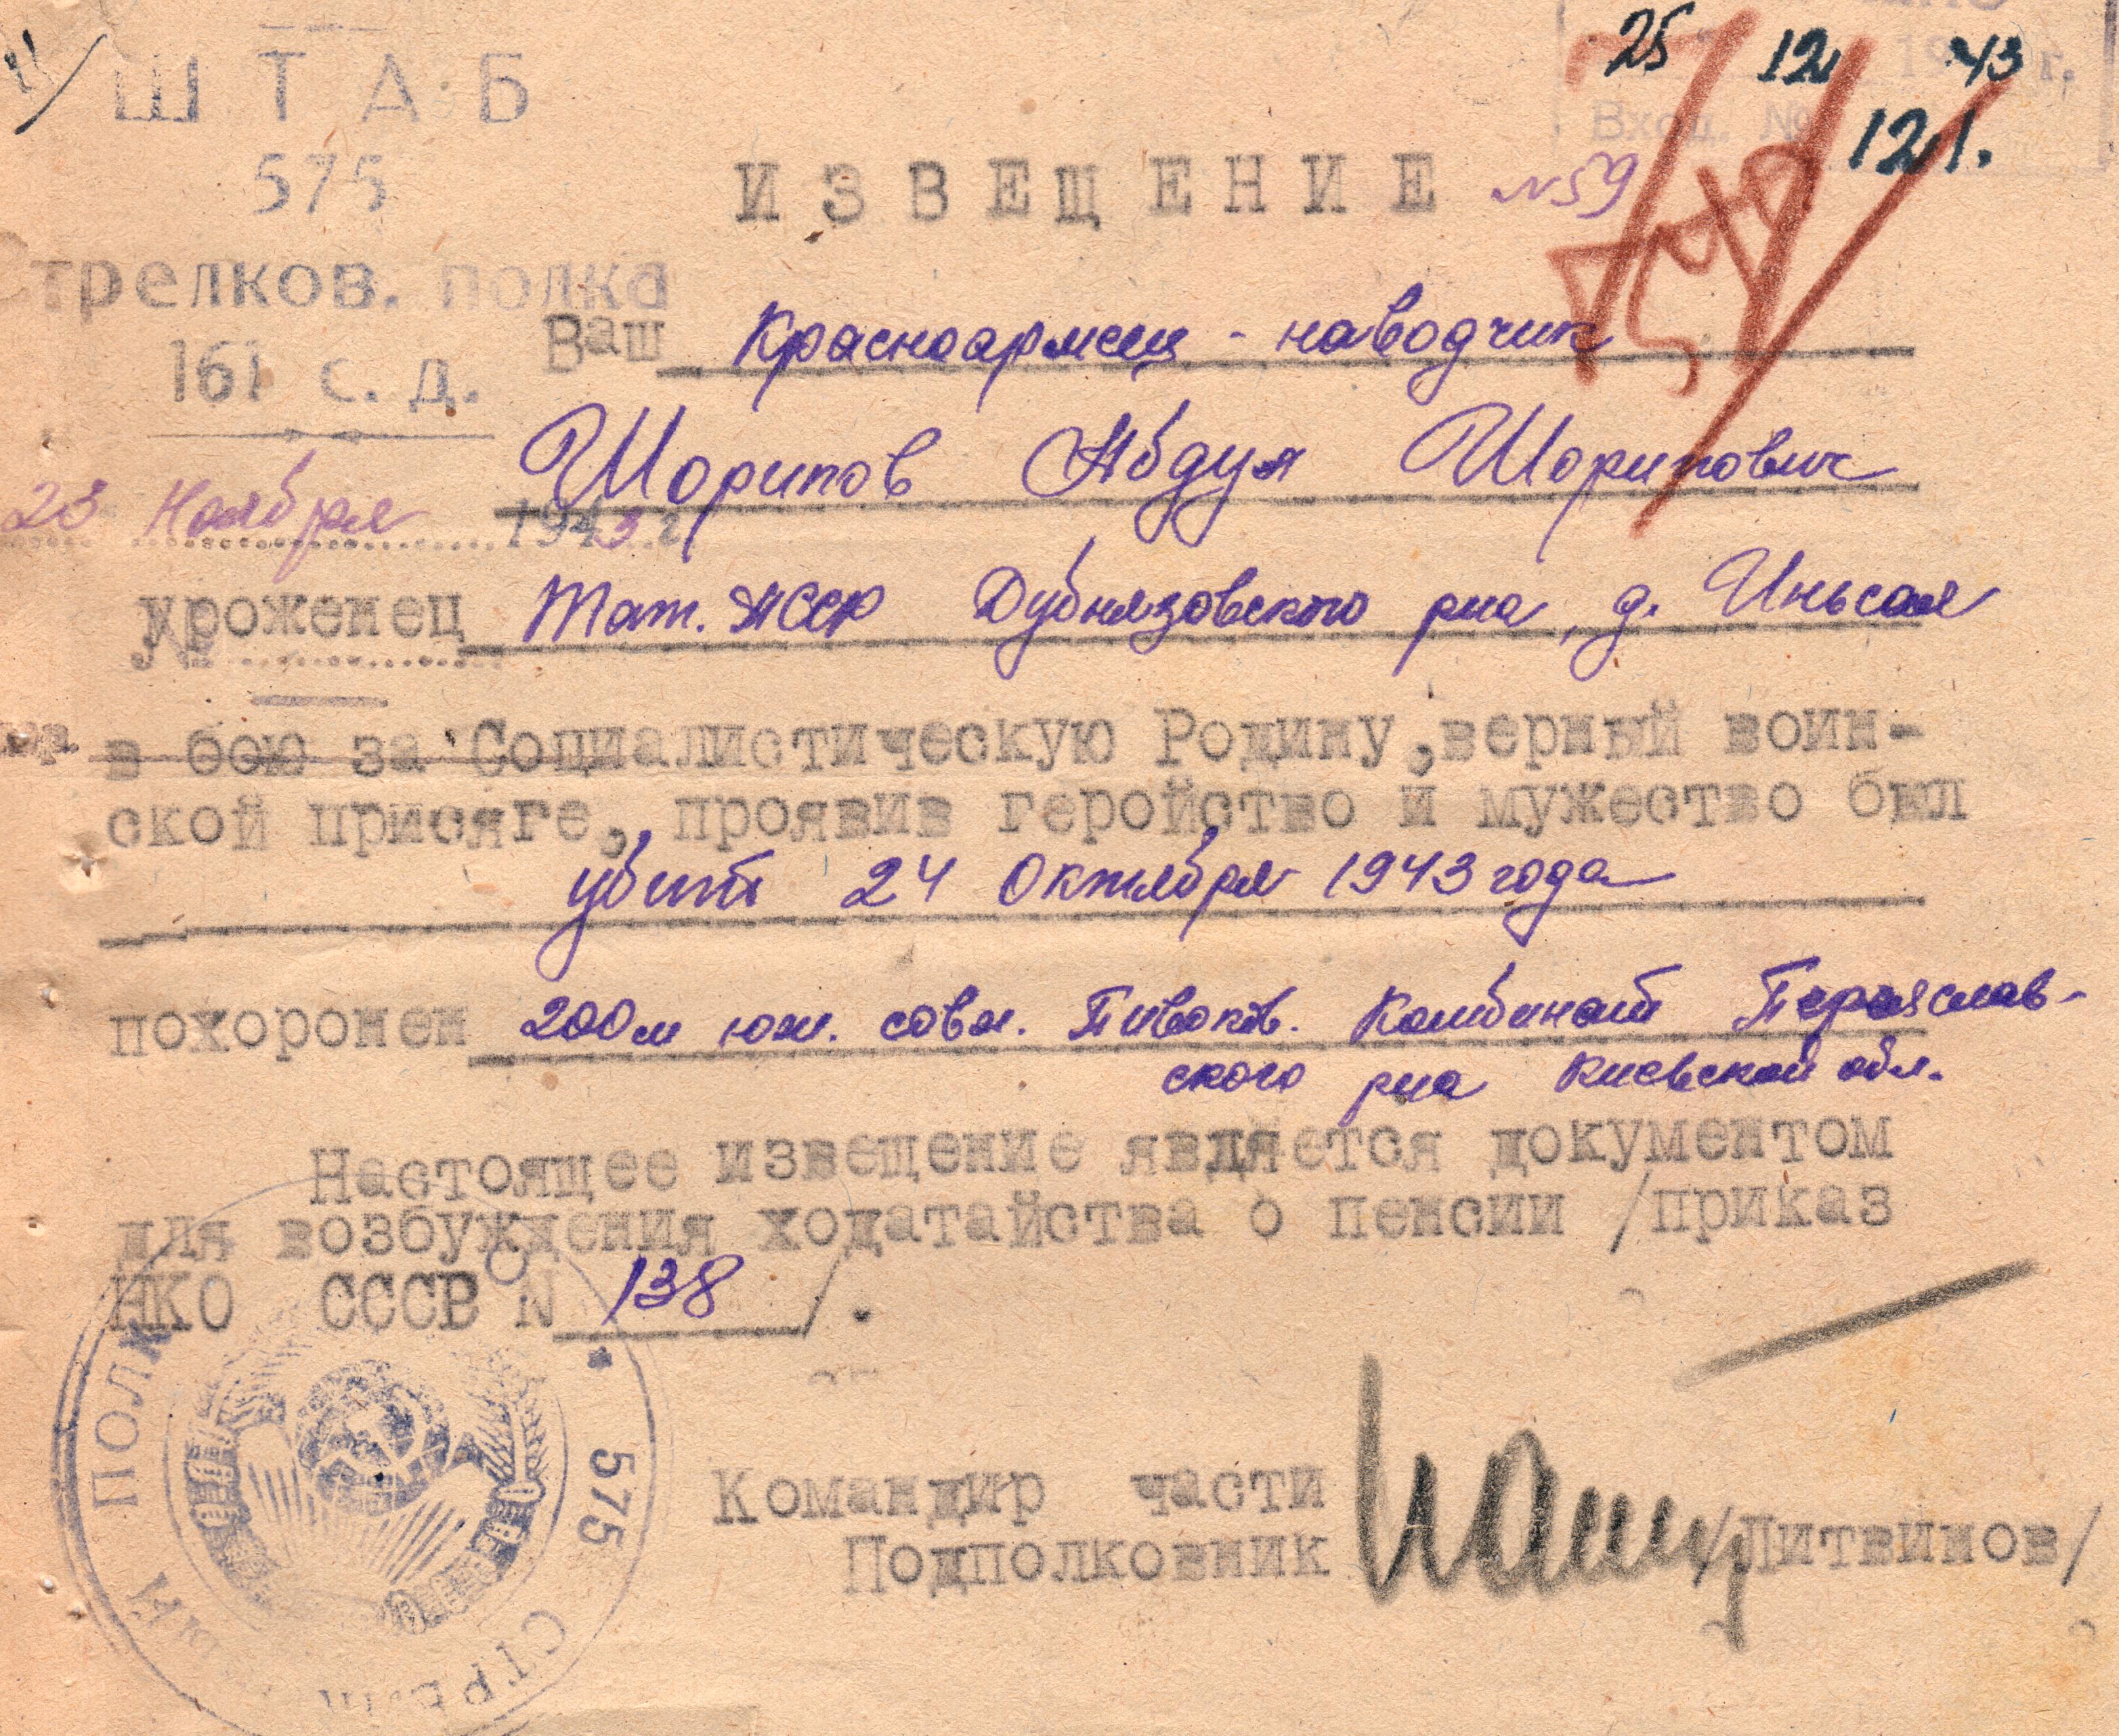 25 12 43
19 г.
Вход. № 121.
ШТАБ
575
стрелков. полка
161 с. д.
23 Ноября 1943 г.
№
ИЗВЕЩЕНИЕ №59
Ваш Красноармеец - наводчик
Шарипов Абдул Шарипович
уроженец Тат. АССР Дубъязовского р-на, д. Иньсая
в бою за Социалистическую Родину, верный воин-
ской присяге, проявив геройство и мужество был
убит 24 Октября 1943 года
похоронен 200 м юж. совх. Комбинат Переяслав-
ского р-на Киевской обл.
Настоящее извещение является документом
для возбуждения ходатайства о пенсии /приказ
НКО СССР N 138 /.
Командир части
Подполковник /Литвинов/
575 СТРЕЛ ИЙ ПОЛК